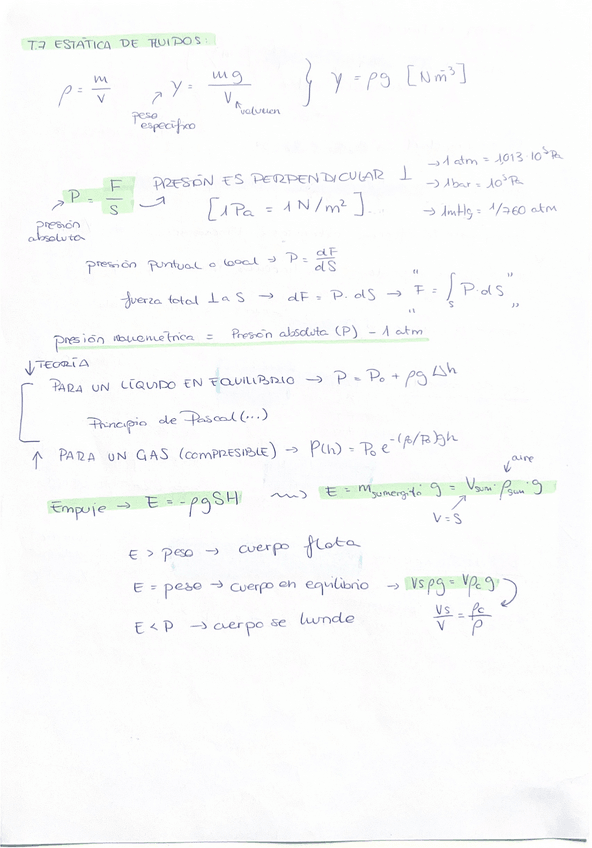 T.7 ESTÁTICA DE FLUIDOS:
ρ = m/V γ = mg/V } γ = ρg [N m⁻³]
peso específico volumen
P = F/S PRESIÓN ES PERPENDICULAR ⊥ → 1 atm = 1013·10⁵ Pa
[1 Pa = 1 N/m²] → 1 bar = 10⁵ Pa
presión absoluta → 1 mHg = 1/760 atm
presión puntual o local → P = dF/dS
fuerza total ⊥ a S → dF = P·dS → "F = ∫s P·dS"
presión manométrica = Presión absoluta (P) - 1 atm
↓ TEORÍA
PARA UN LÍQUIDO EN EQUILIBRIO → P = P₀ + ρg Δh
Principio de Pascal (...)
↑ PARA UN GAS (COMPRESIBLE) → P(h) = P₀ e^-(ρ₀/P₀)gh
aire
Empuje → E = -ρgSH ⟿ E = m sumergido · g = Vsum · ρsum · g
V = S
E > peso → cuerpo flota
E = peso → cuerpo en equilibrio → Vsρg = Vρcg
Vs/V = ρc/ρ
E < P → cuerpo se hunde